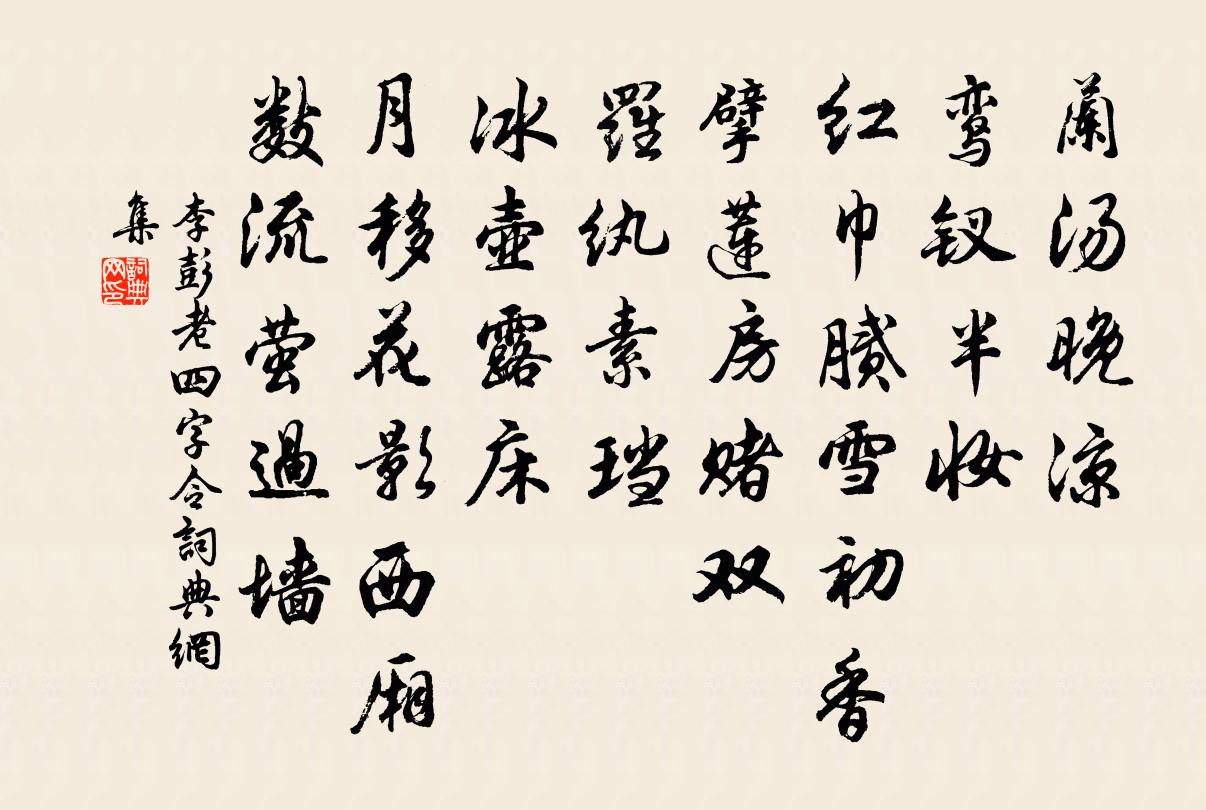 蘭汤晚涼
鸾钗半妆
红巾腻雪初香
擘蓮房赌双
羅纨素珰
冰壺露床
月移花影西厢
数流萤過墙
李彭老四字令詞典網
集
詞典
网印